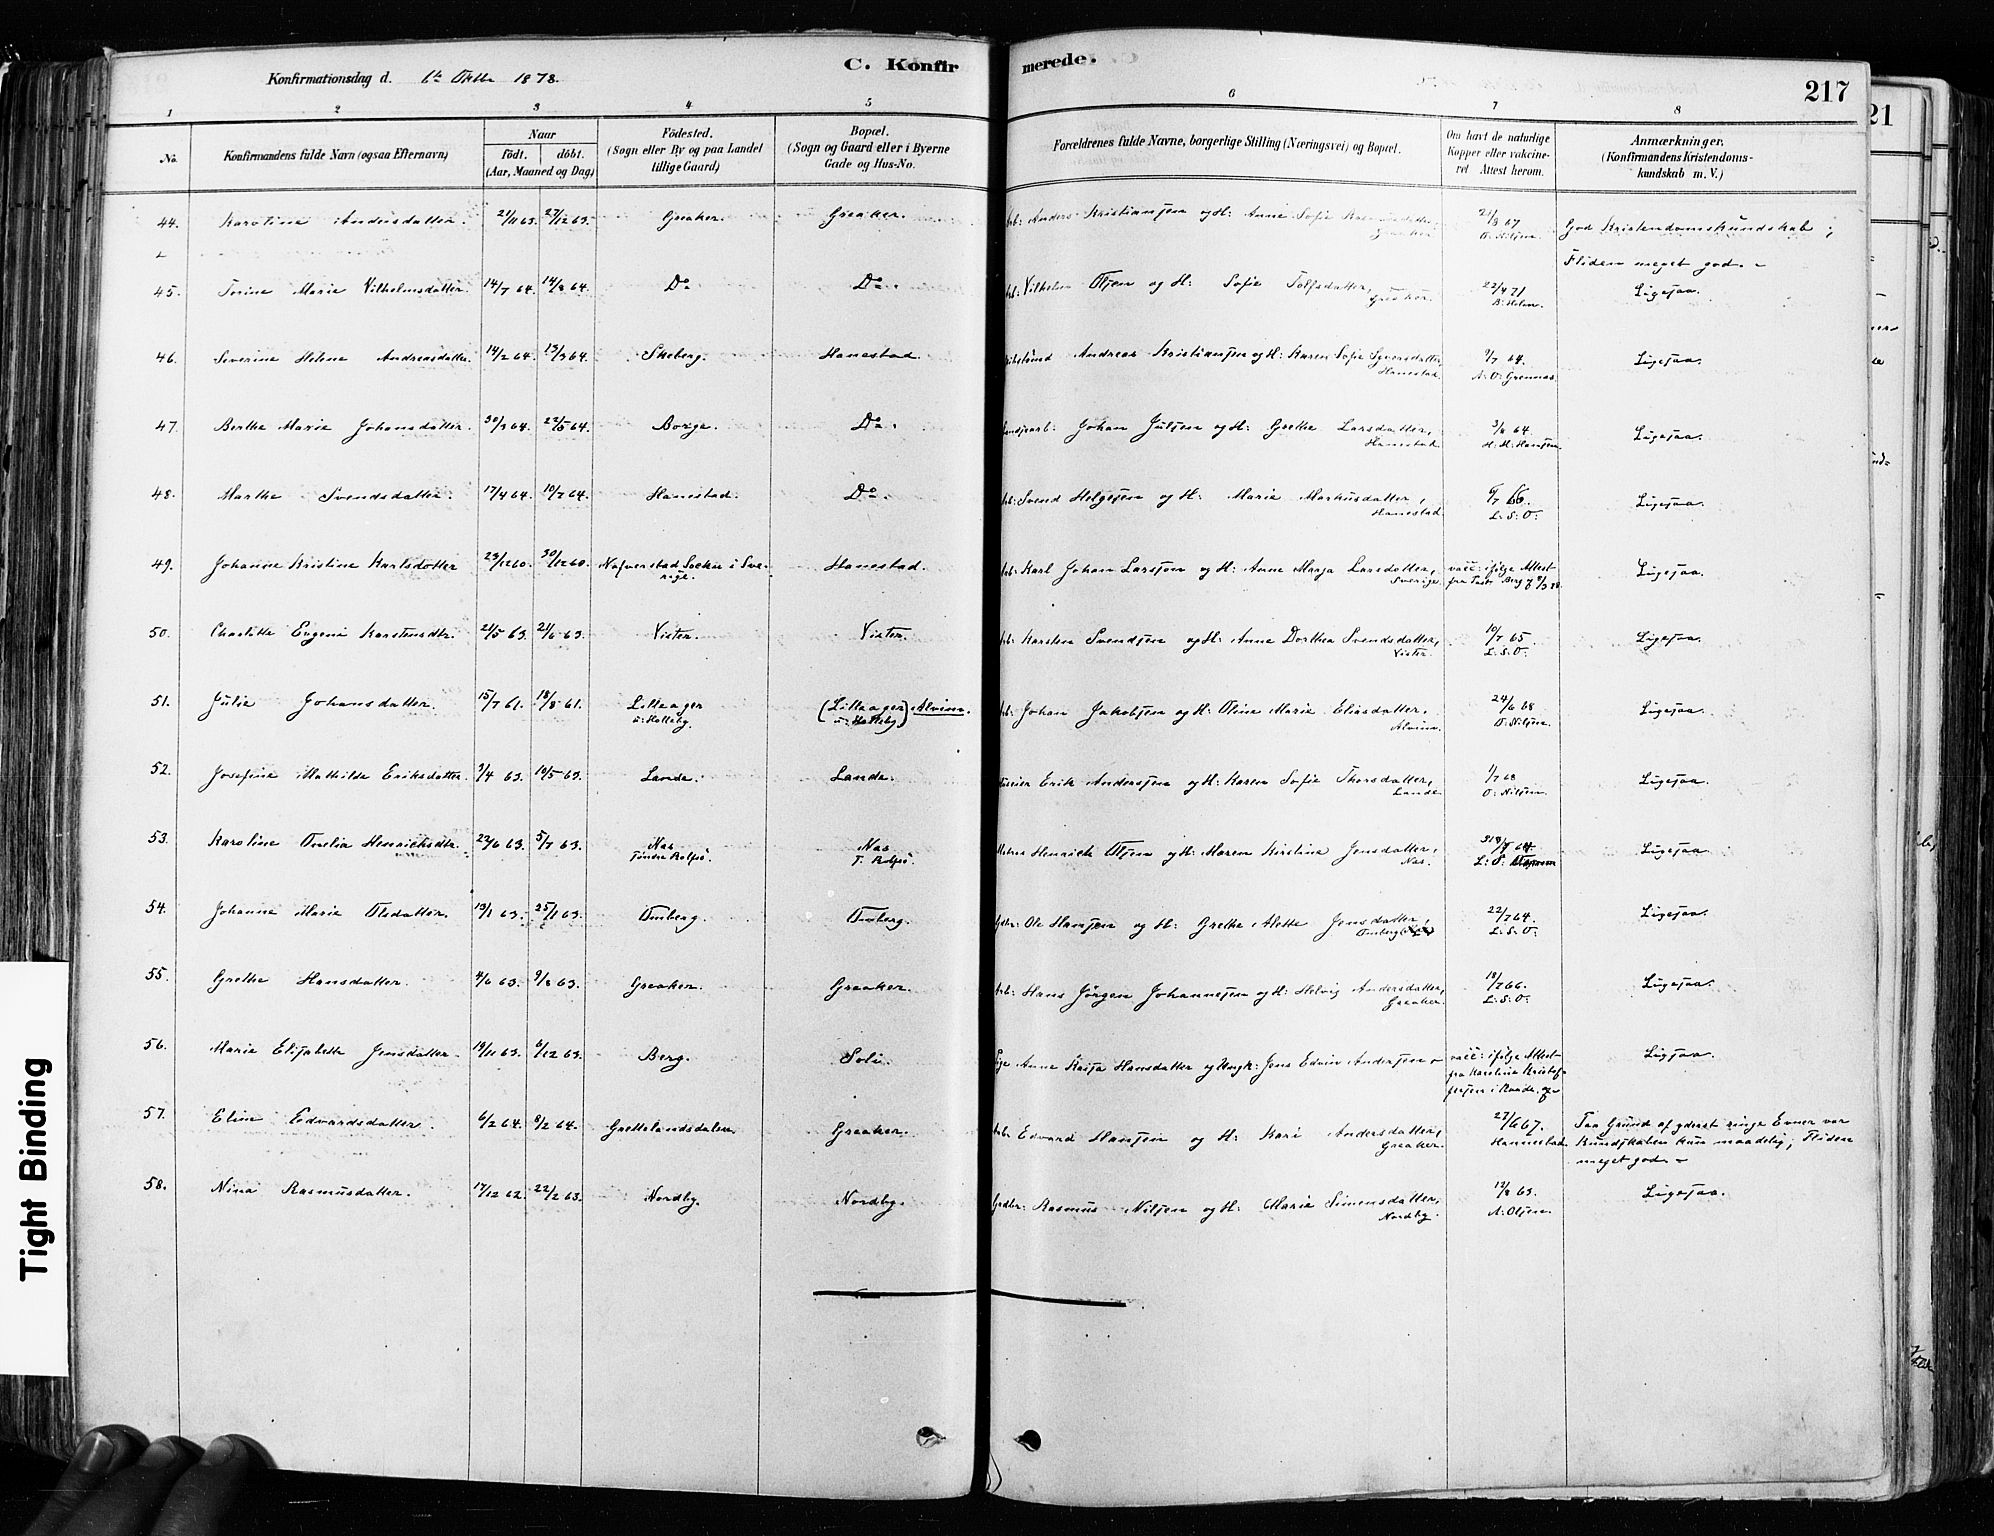 C. Konfirmerede.
217
21
Konfirmationsdag d. 6te Oktbr 1878.
1 2 3 4 5 6 7 8
No. Konfirmandens fulde Navn (ogsaa Efternavn) Naar födt. döbt. (Aar, Maaned og Dag) Födested. (Sogn eller By og paa Landet tillige Gaard) Bopæl. (Sogn og Gaard eller i Byerne Gade og Hus-No. Forældrenes fulde Navne, borgerlige Stilling (Næringsvei) og Bopæl. Om havt de naturlige Kopper eller vakcineret Attest herom. Anmærkninger. (Konfirmandens Kristendomskundskab m. V.)
44. Karoline Andersdatter. 21/11 63. 27/12 63. Greaker. Greaker. Arb: Anders Kristiansen og H: Anne Sofie Greaker 67 O: Nilsen God Kristendomskundskab;
Fliden meget god.
45. Torine Marie Vilhelmsdatter. 14/7 64. 14/8 64. Do Do. Arb: Vilhelm Olsen og H: Sofie Tolfsdatter, Greaker. 22/4 71 B: Holm. Ligesaa.
46. Severine Helene Andreasdatter. 14/2 64. 13/3 64. Skeberg. Hanestad. Andreas Kristiansen og H: Karen Sofie Syversdatter, Hanestad. 9/7 64. A: O: Grennæs. Ligesaa.
47. Berthe Marie Johansdatter. 30/3 64. 22/5 64. Borge. Do. Johan Julsen og H: Grethe Larsdatter, Hanestad. 3/8 64. H: H: Hansen Ligesaa.
48. Marthe Svendsdatter. 17/4 64. 10/7 64. Hanestad. Do. Arb: Svend Helgesen og H: Marie Markusdatter, Hanestad. 6/7 66. L: S: O: Ligesaa.
49. Johanne Kristine Karlsdatter 23/12 60. 30/12 60. Nafverstad Socken i Sverige. Hanestad. Arb: Karl Johan Larsson og H: Anne Marja Larsdatter, Sverige. vacc: ifølge Attest fra Berg Ligesaa.
50. Charlotte Eugeni Karstensdtr. 21/5 63. 21/6 63. Vister. Vister. Arb: Karsten Svendsen og H: Anne Dorthea Svendsdatter, Vister. 10/7 65. L: S: O: Ligesaa.
51. Julie Johansdatter. 15/7 61. 18/8 61. Lilleager u: Holleby. (Lilleager u: Holleby) Alvim. Arb: Johan Jakobsen og H: Oline Marie Eliasdatter, Alvim. 24/6 68 O: Nilsen. Ligesaa.
52. Josefine Mathilde Eriksdatter. 3/4 63. 10/5 63. Lande. Lande. Erik Andersen og H: Karen Sofie Thorsdatter, Lande 1/7 68 O: Nilsen. Ligesaa.
53. Karoline Omelia Henriksdtr. 22/6 63. 5/7 63. Nes Tundre Rolfsö. Nes T. Rolfsö. Henrich Olsen og H: Maren Kirstine Jensdatter, Nes. 64 L: S: Ligesaa.
54. Johanne Marie Olsdatter. 13/1 63. 25/1 63. Omberg. Omberg. Ole Hansen og H: Grethe Alette Jensdatter, Omberg 22/7 64. L: S: O: Ligesaa.
55. Grethe Hansdatter. 4/6 63. 9/8 63. Greaker. Greaker. Arb: Hans Jörgen Johannesen og H: Helvig Andersdatter, Greaker. 18/7 66. L: S: O: Ligesaa.
56. Marie Elisabette Jensdatter. 19/11 63. 6/12 63. Berg. Soli. Pige Anne Kaisa Hansdatter og Ungk: Jens Edvin Andersen vacc: ifølge Attest fra Karoline Kristoffersen i Raade. Ligsaa.
57. Eline Edvardsdatter. 6/2 64. 8/2 64. Grettelandsdalen. Greaker. Arb: Edvard Hansen og H: Kari Andersdatter, Greaker. 27/6 67. Hannestad. Paa Grund af yderst ringe Evner var
Kundskaben kun maadelig; Fliden
meget god.
58. Nina Rasmusdatter. 17/12 62. 22/2 63. Nordby. Nordby. Grdbr: Rasmus Nilsen og H: Marie Simensdatter, Nordby. 12/8 63. A: Olsen. Ligesaa.
Tight Binding